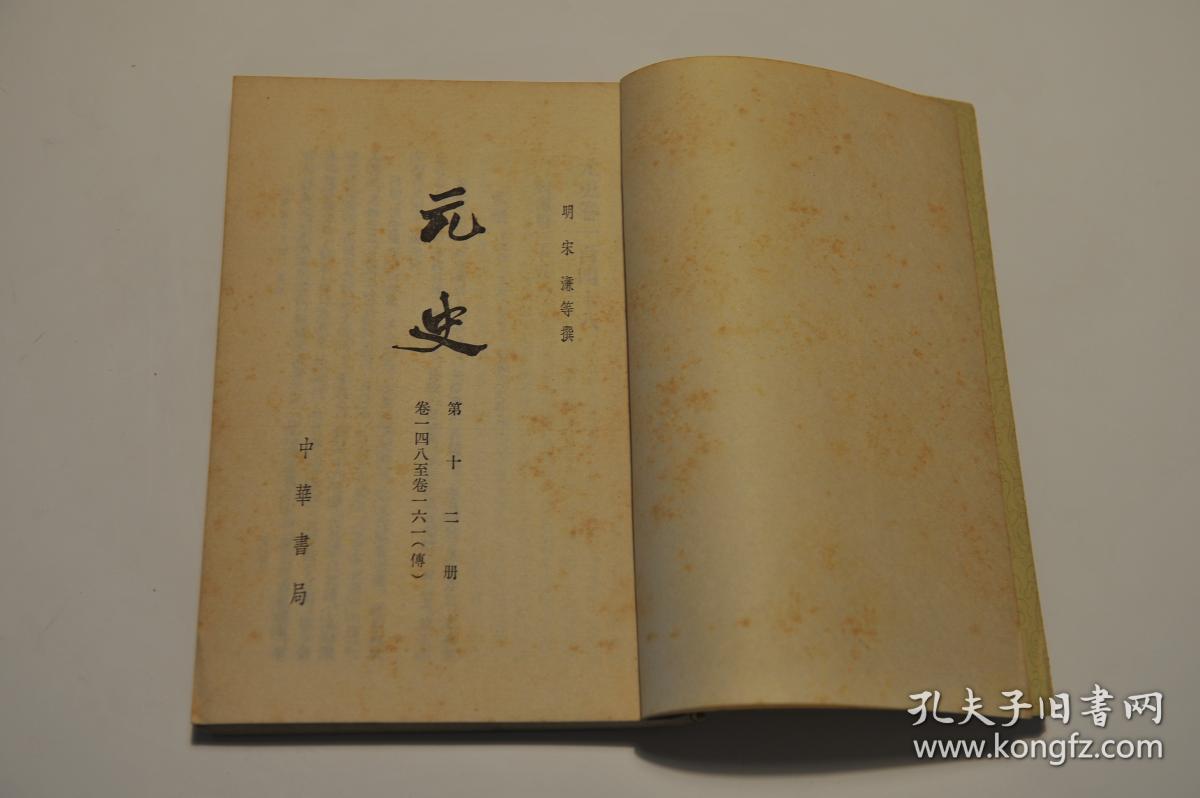 明 宋濂等撰
元史
第十二册
卷一四八至卷一六一(傳)
中華書局
孔夫子旧書网
www.kongfz.com